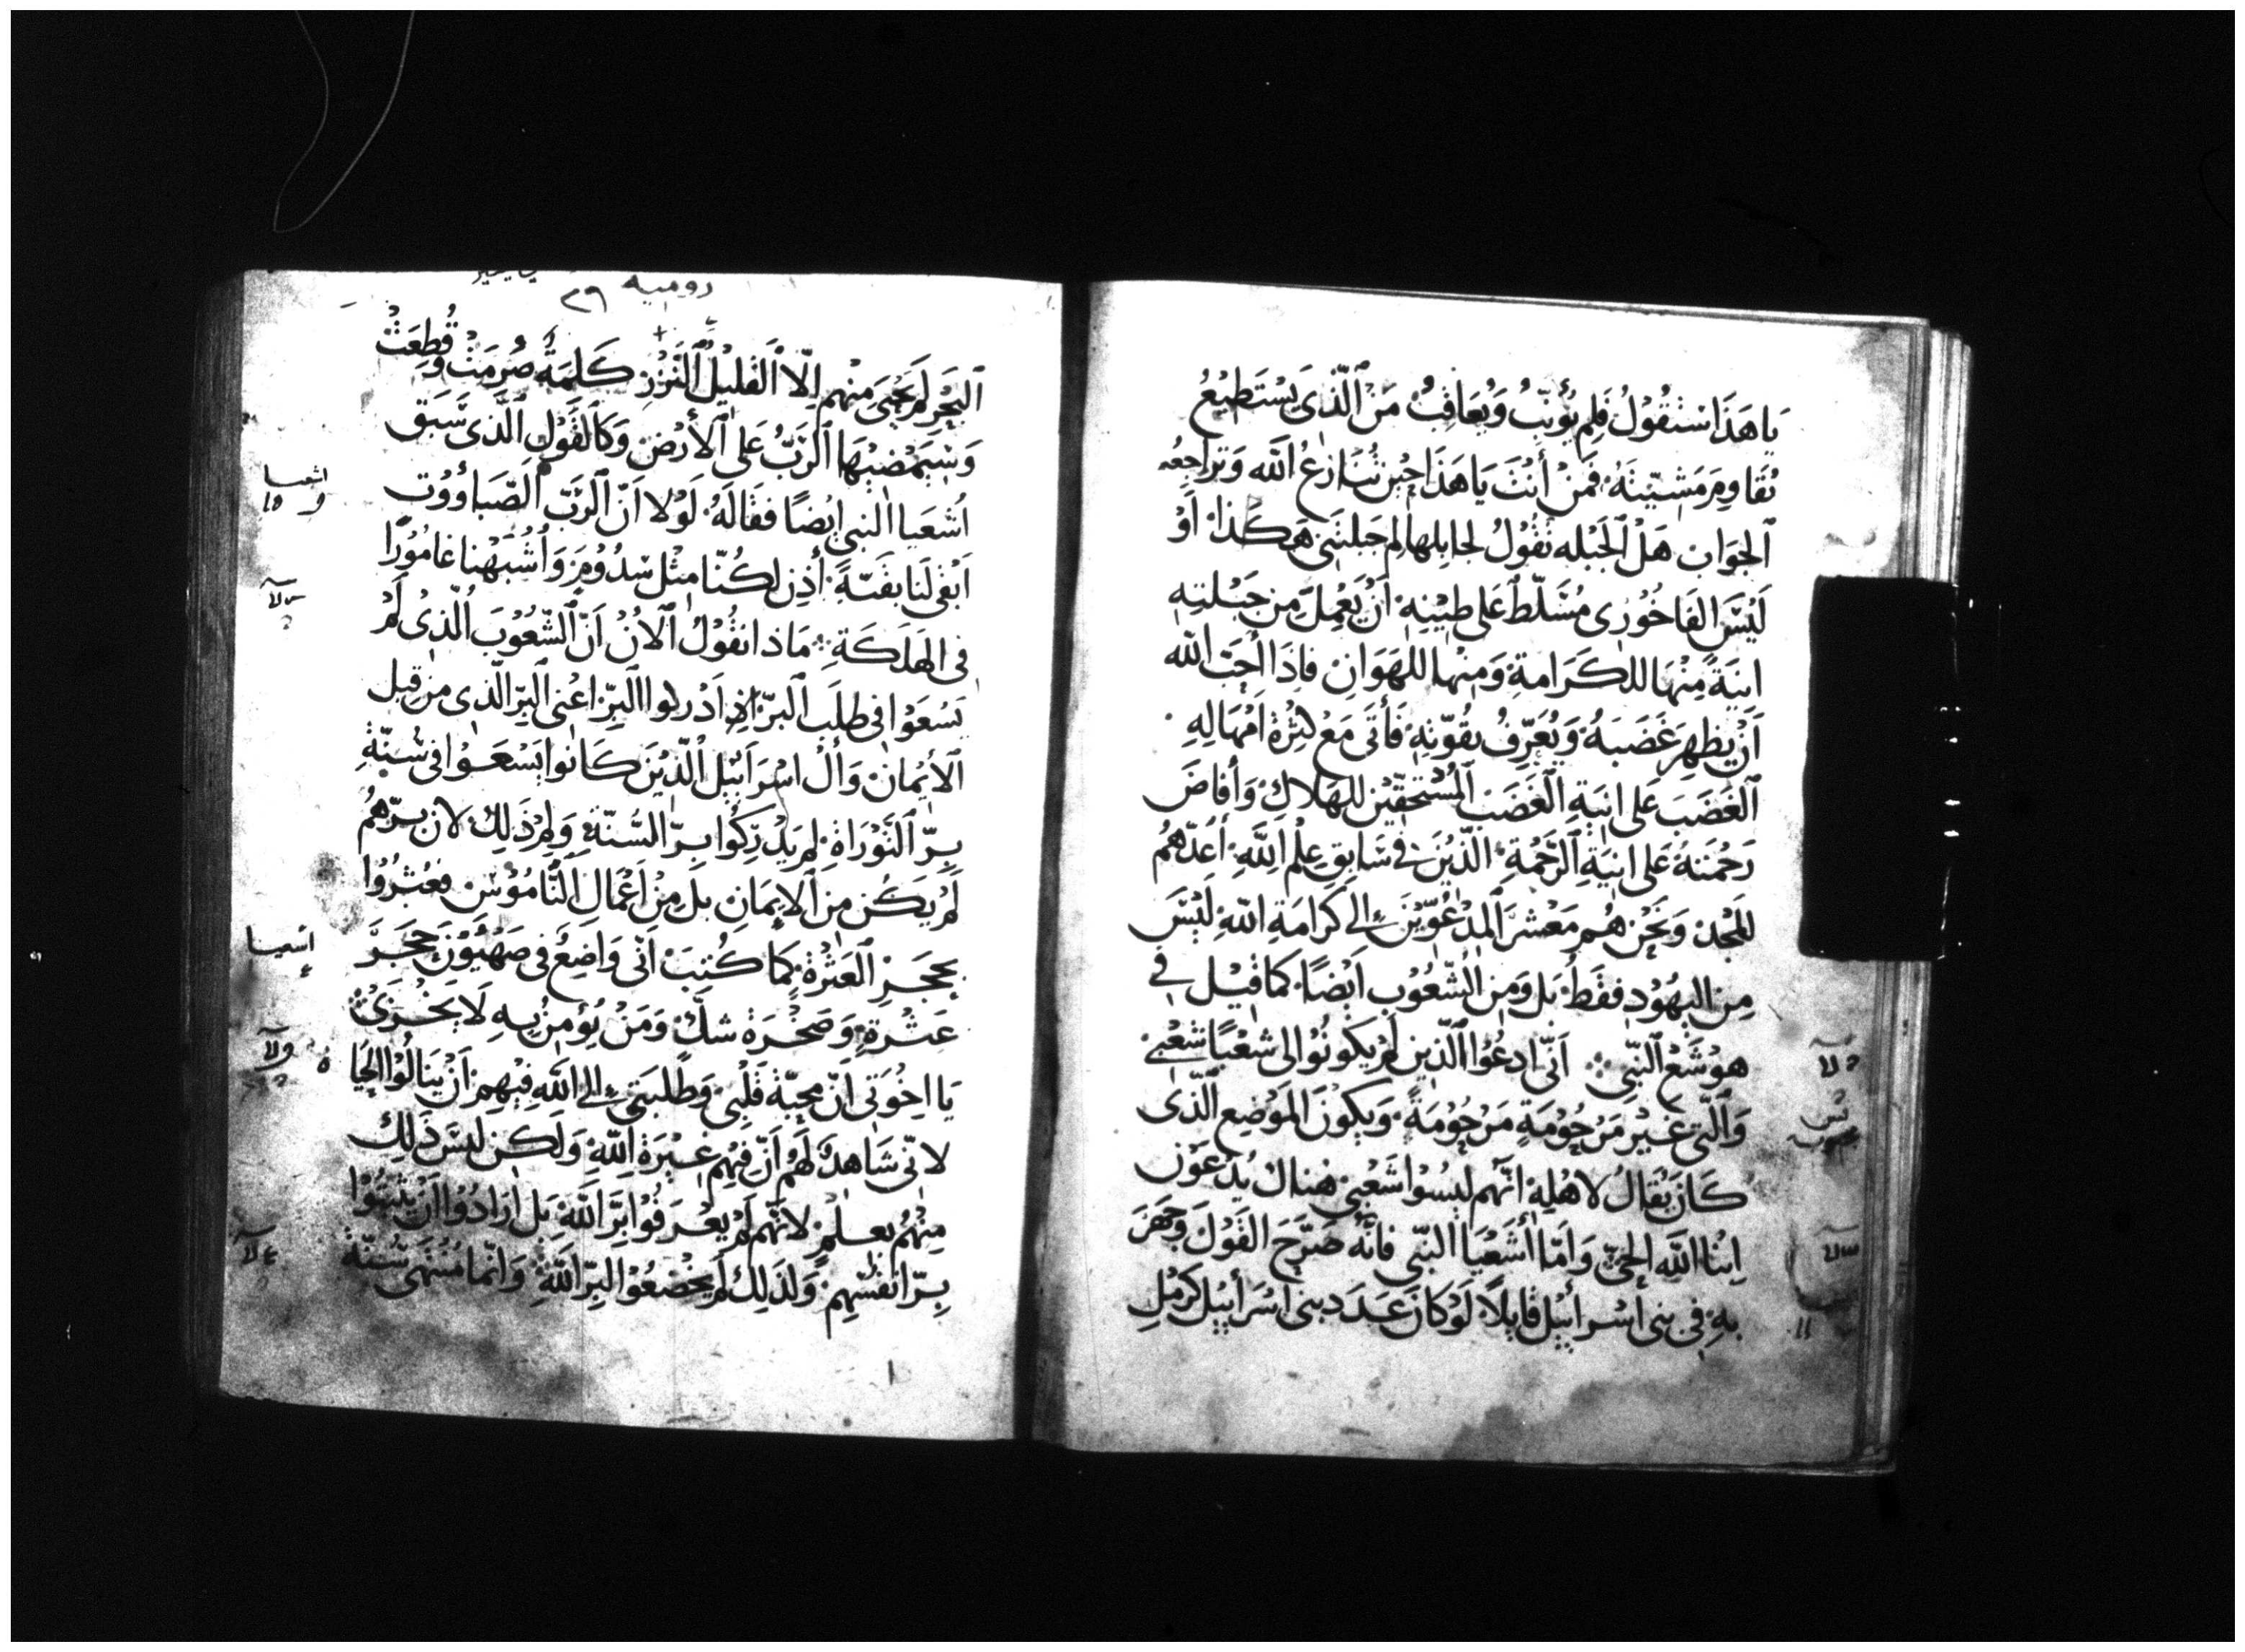 يَاهَذَا سَتَقُوْلُ فَلِم يُؤَنِّبُ وَيُعَاقِبُ مَنِ ٱلَّذِى يَسْتَطِيْعُ
يُقَاوِمَ مَشِيّئَتَهُ فَمَنْ أَنْتَ يَا هَذَا حِيْن تُنَازِعُ ٱللَّه وَتراجِعُه
ٱلجَوَابَ هَلْ ٱلجَبْله تَقُوْلُ لجابِلها لِم جَبلتَنِى هَكَذا أَوْ
لَيْسَ الفَاخُوْرِى مُسَلّطٌ عَلى طِيْنِهِ أَنْ يَعْمِلَ مِن جَبْلتِهِ
انِيَةً مِنْهَا للكَرَامةِ وَمِنْها للهَوَانِ فاِذَا أَحَبّ اللّه
اَنْ يظهِرَ غَضَبَهُ وَيُعَرِّفُ بقُوّتِهِ فَأَتَى مَعْ كثِرْة اَمْهَالِهِ
ٱلغَضَبَ عَلى انِيَةِ ٱلغَضَبِ ٱلمُسْتحِقّيْن للهَلاكِ وَأَفاضَ
رَحْمَتهُ عَلى انِيَةِ ٱلرَّحْمةِ الّذِيْنَ فى سَابِقِ عِلْم اللَّهِ أعَدّهُم
للمَجْد وَنَحْن هُم مَعْشرَ المدْعُوّيْن إلى كرَامَةِ اللّهِ ليْسَ
مِنَ اليَهُوْد فقَط بَل وَمِن الشّعُوْب اَيْضًا كمَا قيْل فى
هوْشَعْ ٱلنَّبِى اَنّى ادعُوا ٱلّذِين لَمْ يكونُوْا لى شعْبًا شعْبِى
وَالّتى غيْر مَرْحُوْمَةٍ مَرْحُوْمَةً وَيكُونَ المَوْضِع الّذى
كَانَ يُقالُ لاهْلِهِ انّهم ليْسُوا شَعْبِى هُناك يُدْعَوْن
ابنا اللَّه الحَىّ وَامّا أشَعْيَا النبّى فانّه صَرّحَ القَوْلَ وَجَهَرَ
بهِ فى بنى اسْرائيْل قايلاً لَوْ كانَ عَدَد بنى اسْرَائيْل كرَمْلِ
رومیه
٢٩
البَحْر لَمْ يَحْيَى مِنْهم اِلّا القليْل النّزْر كَلِمَةٌ صُرِمَتْ وَقُطِعَتْ
وَسَيَمْضِيْهَا ٱلرَّبُّ عَلى ٱلأَرْض وَكَٱلقَوْلِ الَّذى سَبَق
اُشعَيا النبي ايْضًا فقَالهُ لَوْلا اَنّ ٱلرَّبَّ ٱلصّبَاؤُوْت
اَبْقَى لَنَا بقيّةً أذِن لكُنّا مِثْل سَدُوْمَ وَاُشْبَهْنا غامُوْرًا
فى الهَلَكَةِ مَاذا نقُوْلُ ٱلاَنْ اَنّ ٱلشّعُوْبَ ٱلّذِىْ لَمْ
يَسْعَوْا فى طلَبِ ٱلبِرّ اَدْركوا البِرّ اعْنى البِرّ الّذى من قِبل
ٱلأَيْمَان وَاَلْ اسْرَائيْل الّذِيْن كَانُوا يَسْعَوْا فى سُنّةِ
بِرّ ٱلتَّوْرَاةِ لم يَدْرِكُوا بِرّ السُنّةِ وَلِمَ ذَلِك لان بِرّهُم
لَمْ يَكُن مِن ٱلايمَانِ بَل مِنْ اَعْمَال النَّامُوْسْ فعَثرُوْا
بحَجَرِ ٱلعَثْرَةِ كمَا كُتِبَ اَنّى وَاضِعٌ فى صَهْيَوْن حَجَرَ
عَثْرَةٍ وَصَخْرَة شكٍّ وَمَنْ يُؤْمِنُ بهِ لَا يَخْزَىْ
يَا اخْوَتى اَنّ مَحبّةَ قَلْبِى وَطَلبَتى إلى اللَّهِ فِيْهِم اَنْ يَنالُوْا الحَيَا ة
لانّى شَاهدٌ لهُمْ اَنّ فيْهِم غيْرَة اللّهِ وَلَكِن ليْسَ ذَلِكَ
مِنْهُم بعِلمٍ لانّهم لَمْ يَعْرَفُوا بِرَّ اللَّهِ بَل اَرَادُوْا اَنْ يثبِّتُوْا
بِرّ انفسْهم وَلذَلِكَ لَمْ يَخْضعُوْا لبِرّ اللَّهِ وَانّما مُنْتَهَى سُنّةِ
اشعيا
اشعيا